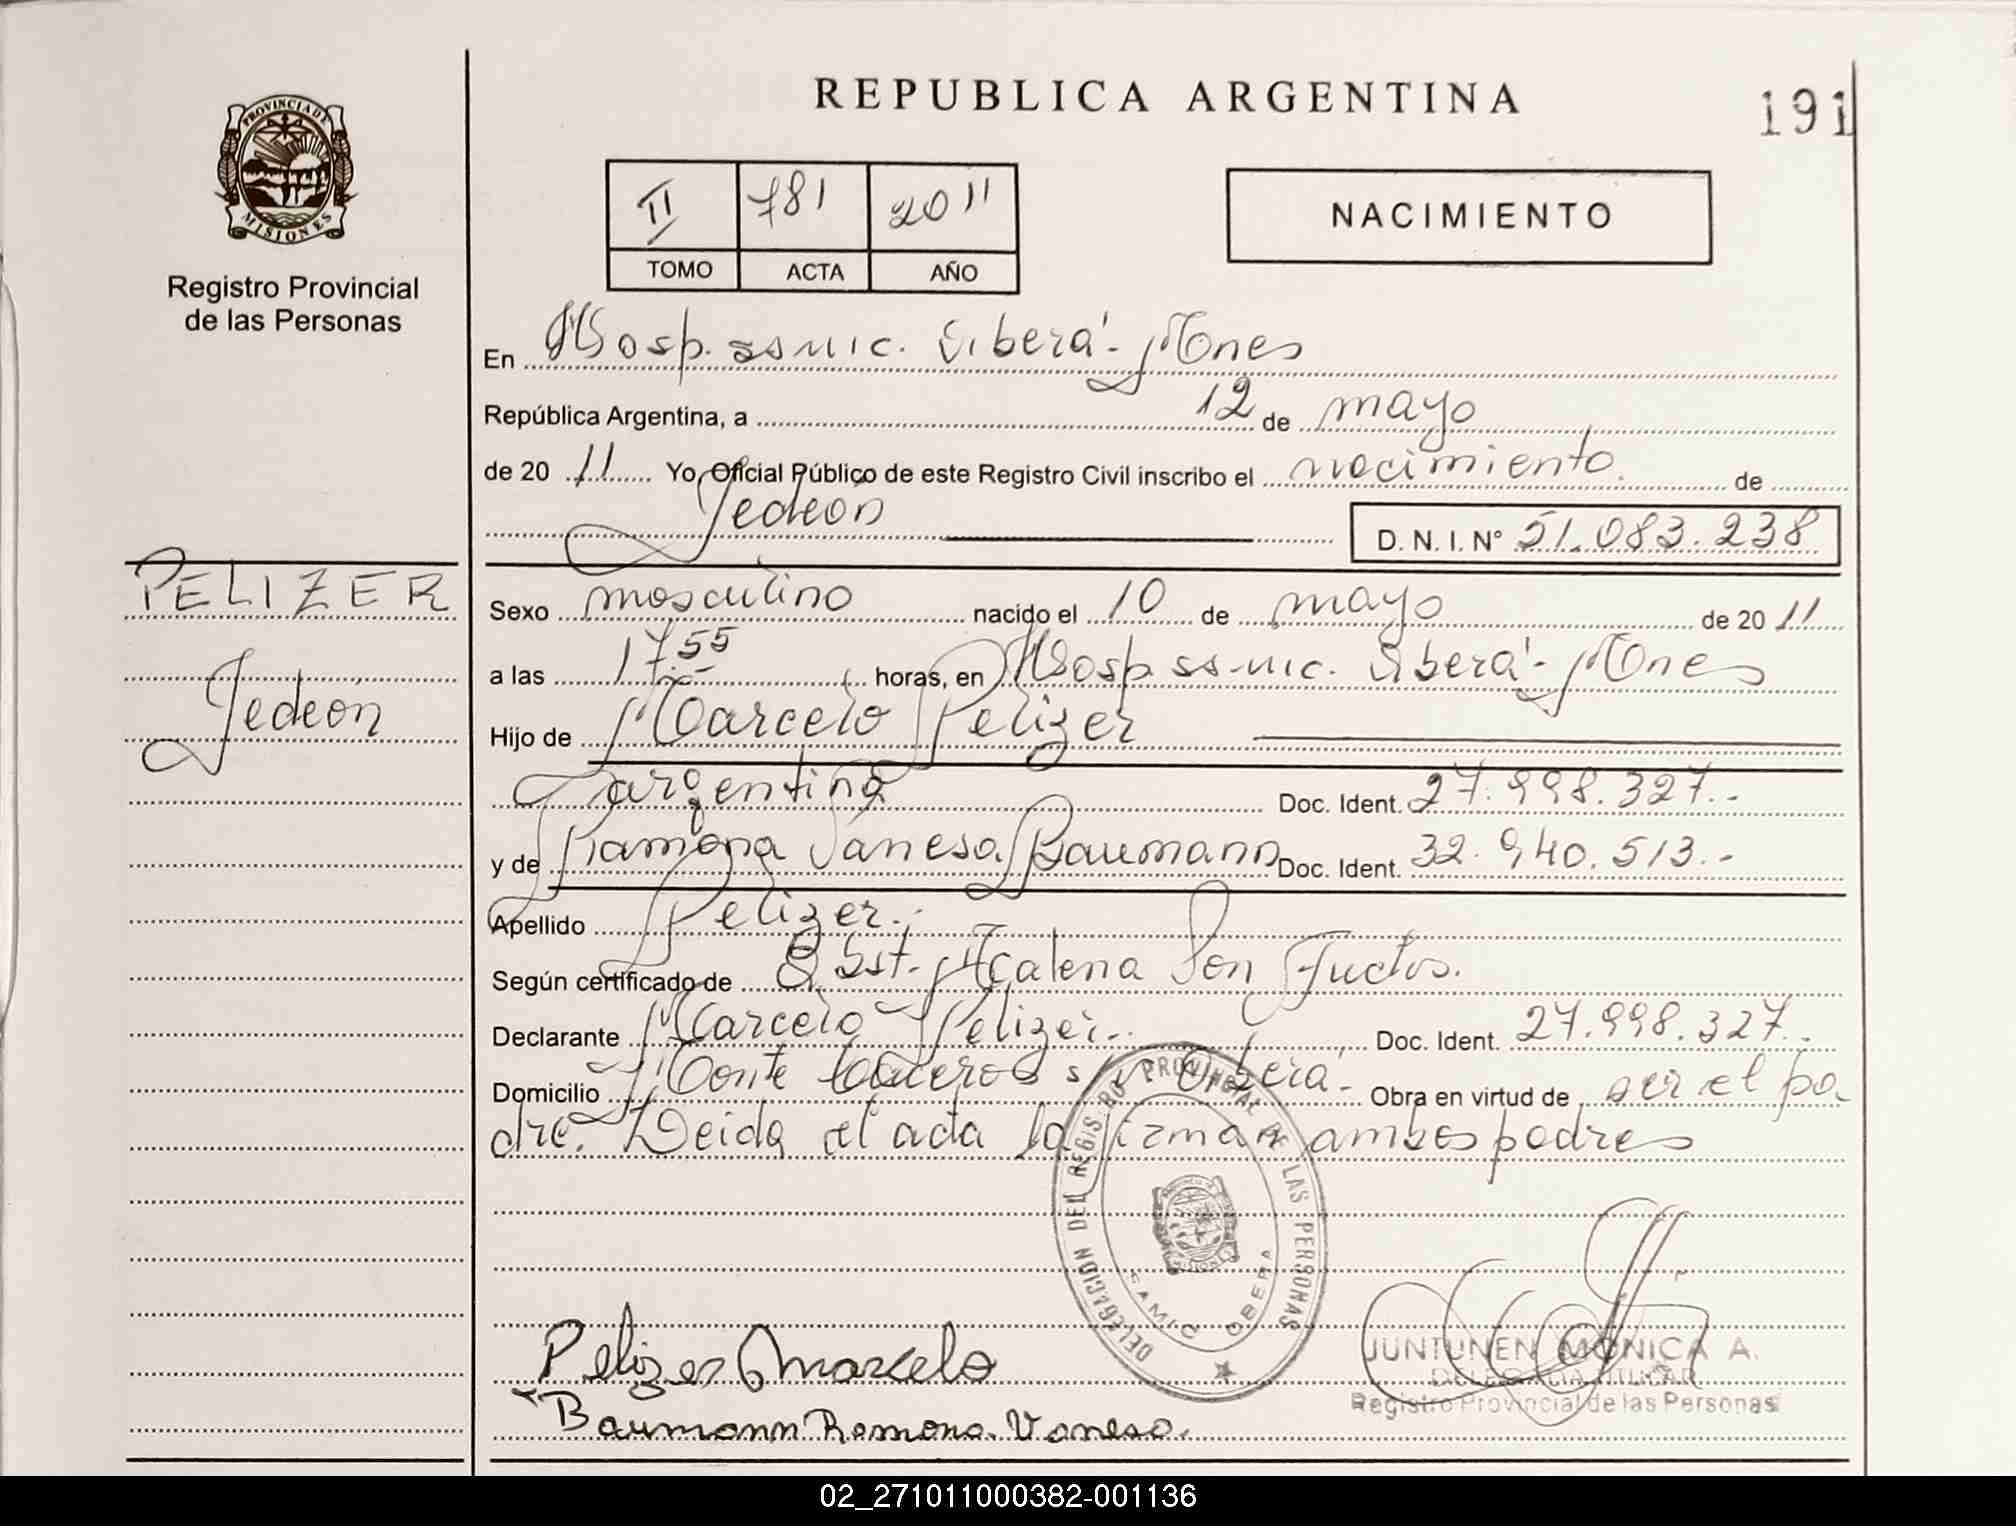 REPUBLICA ARGENTINA
191
PROVINCIA DE
MISIONES
Registro Provincial
de las Personas
II 781 2011
TOMO ACTA AÑO
NACIMIENTO
En Hosp. ss mic. Oberá - Mones
República Argentina, a 12 de mayo
de 20 11 Yo, Oficial Público de este Registro Civil inscribo el nacimiento. de
Jedeón
D. N. I. N° 51.083.238
PELIZER
Jedeón
Sexo masculino nacido el 10 de mayo de 20 11
a las 17.55 horas, en Hosp ss-mic. Oberá - Mones
Hijo de Marcelo Pelizer
argentina Doc. Ident. 27.998.327.-
y de Ramona Vanesa Baumann Doc. Ident. 32.940.513.-
Apellido Pelizer.-
Según certificado de Obst.
Declarante Marcelo Pelizer.- Doc. Ident. 27.998.327.-
Domicilio Monte s/n Oberá.- Obra en virtud de ser el pa
dre. Leida el acta la firman ambos padres
DELEGACION DEL REGISTRO PROVINCIAL DE LAS PERSONAS
SAMIC OBERA
Pelizer Marcelo
Baumann Ramona Vanesa.
JUNTUNEN MONICA A.
DELEGADA TITULAR
Registro Provincial de las Personas
02_271011000382-001136